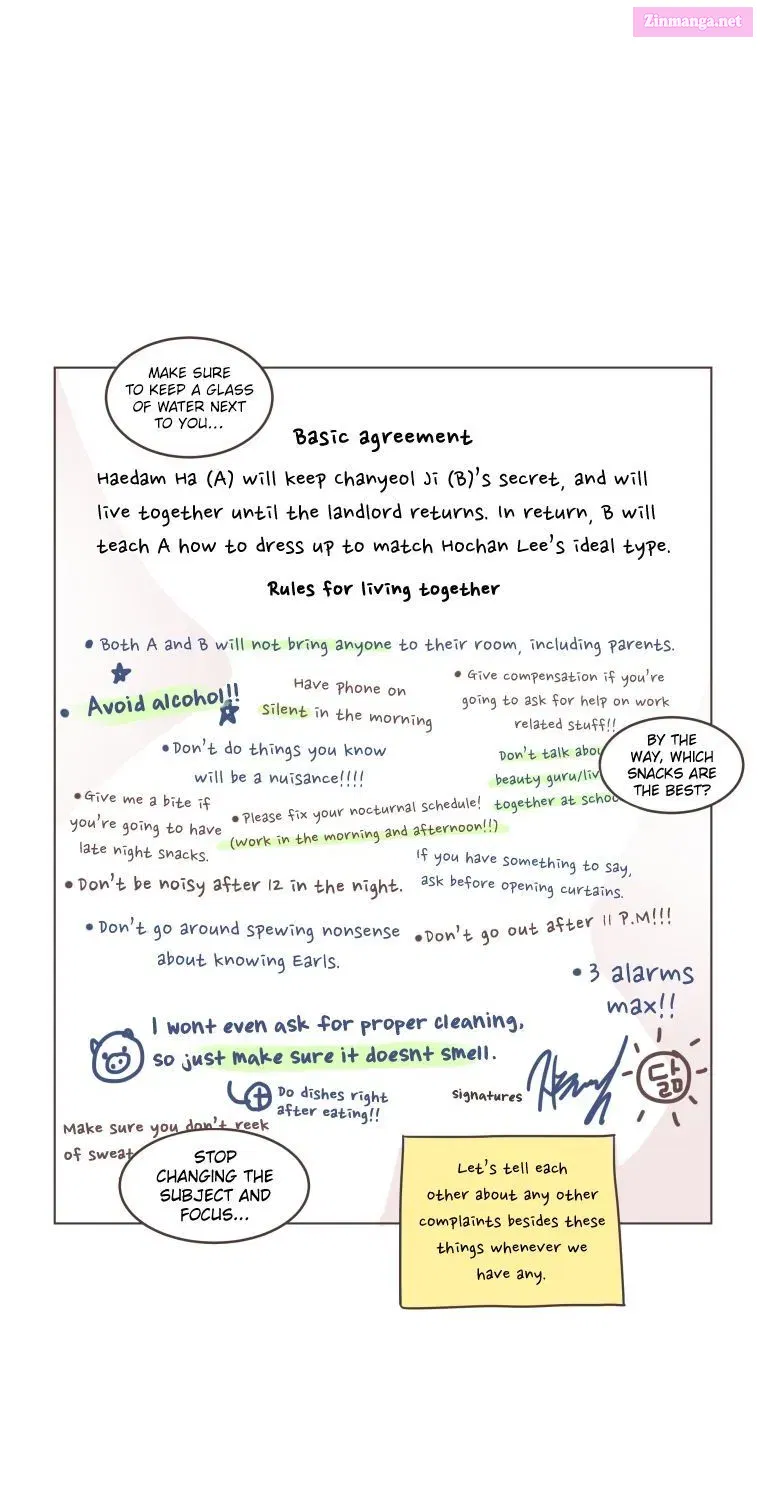 Zinmanga.net
MAKE SURE
TO KEEP A GLASS
OF WATER NEXT
TO YOU...
Basic agreement
Haedam Ha (A) will keep Chanyeol Ji (B)'s secret, and will
live together until the landlord returns. In return, B will
teach A how to dress up to match Hochan Lee's ideal type.
Rules for living together
• Both A and B will not bring anyone to their room, including parents.
• Avoid alcohol!!
Have phone on
silent in the morning
• Give compensation if you're
going to ask for help on work
related stuff!!
• Don't do things you know
will be a nuisance!!!!
Don't talk
beauty guru/
together at
BY THE
WAY, WHICH
SNACKS ARE
THE BEST?
• Give me a bite if
you're going to have
late night snacks.
• Please fix your nocturnal schedule!
(work in the morning and afternoon!!)
• Don't be noisy after 12 in the night.
If you have something to say,
ask before opening curtains.
• Don't go around spewing nonsense
about knowing Earls.
• Don't go out after 11 P.M!!!
• 3 alarms
max!!
I wont even ask for proper cleaning,
so just make sure it doesnt smell.
Do dishes right
after eating!!
signatures
닮
Make sure you don't reek
of sweat
STOP
CHANGING THE
SUBJECT AND
FOCUS...
Let's tell each
other about any other
complaints besides these
things whenever we
have any.